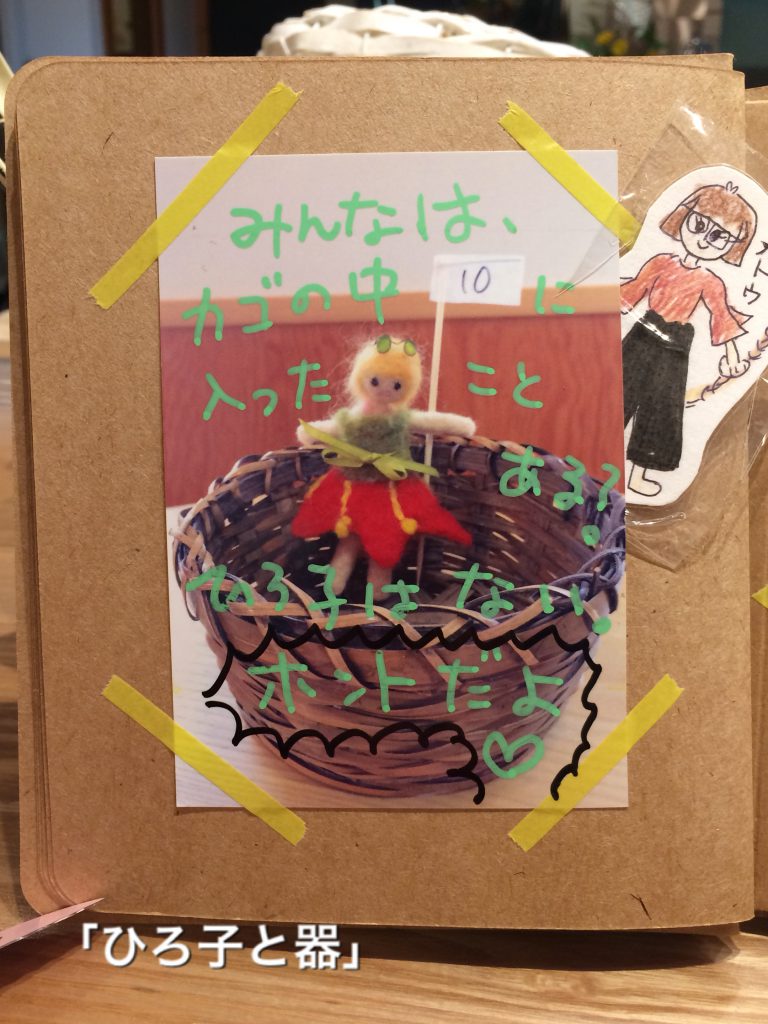 みんなは、
カゴの中 10 に
入った こと
ある?
ひろ子はない。
ホントだよ
「ひろ子と器」